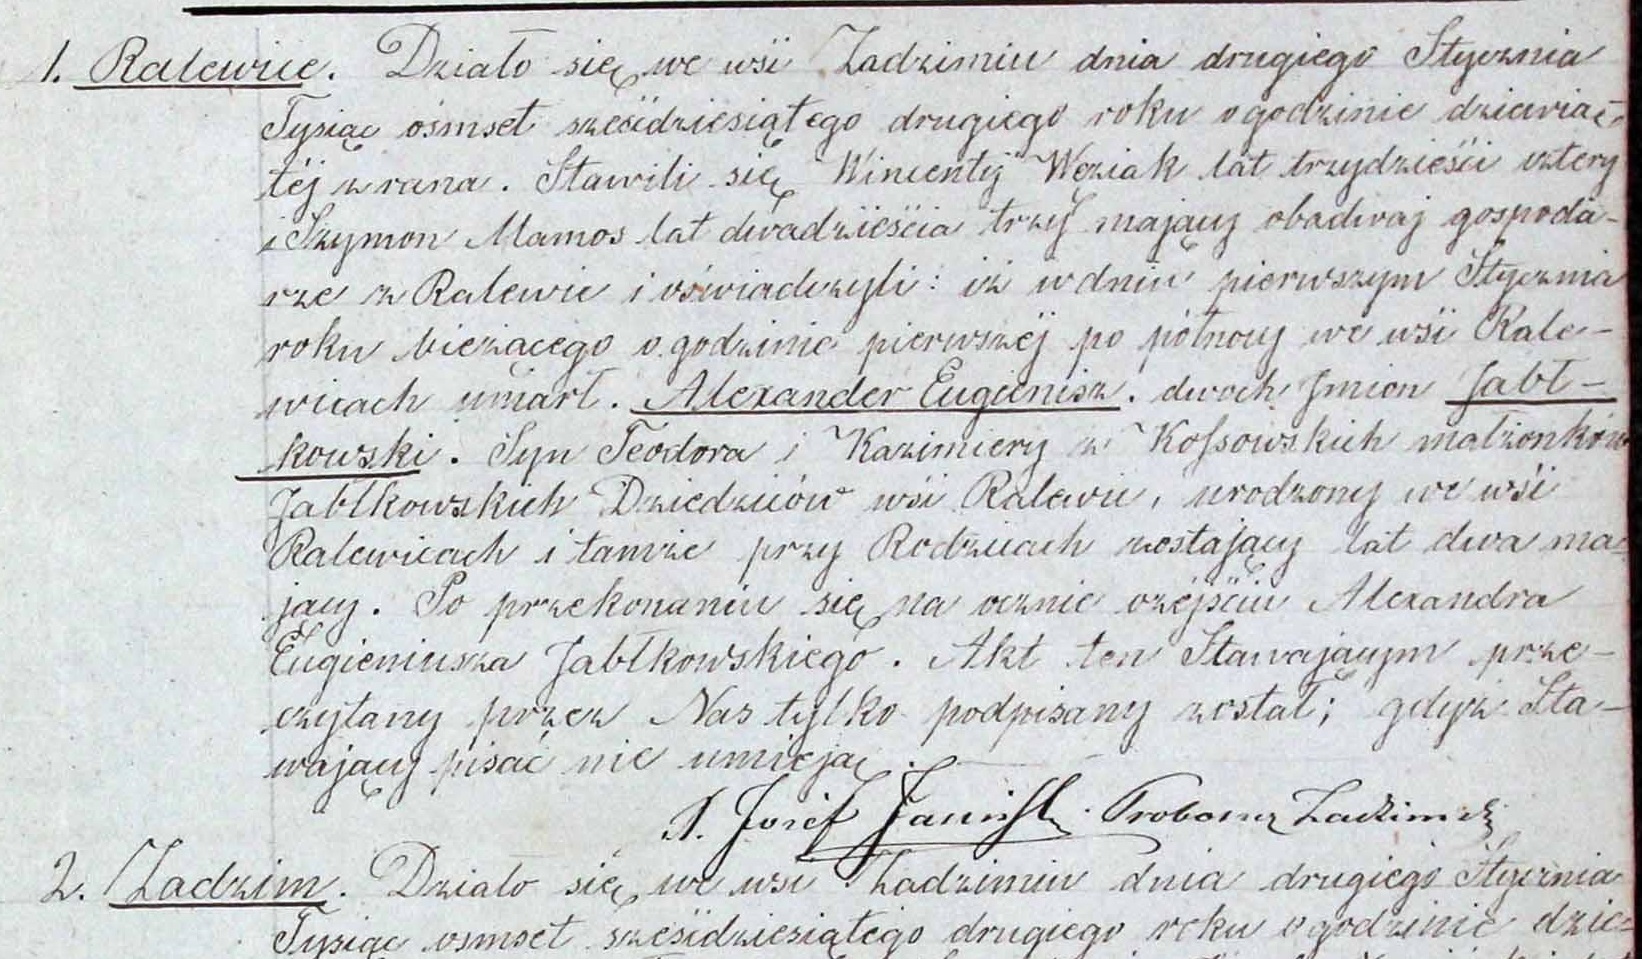 1. Ralewice. Działo się we wsi Zadzimiu dnia drugiego Stycznia
Tysiąc ośmset sześdziesiątego drugiego roku o godzinie dziewią-
téj z rana. Stawili się Wincenty Węziak lat trzydzieści cztery
i Szymon Mamos lat dwadzieścia trzy mający obadwaj gospoda-
rze z Ralewic i oświadczyli: iż w dniu pierwszym Stycznia
roku bieżącego o godzinie pierwszéj po północy we wsi Rale-
wicach umarł. Alexander Eugienisz. dwoch Jmion Jabł-
kowski. Syn Teodora i Kazimiery z Kossowskich małżonków
Jabłkowskich Dziedziców wsi Ralewic, urodzony we wsi
Ralewicach i tamże przy Rodzicach zostający lat dwa ma-
jący. Po przekonaniu się na ocznie o zéjściu Alexandra
Eugieniusza Jabłkowskiego. Akt ten Stawającym prze-
czytany przez Nas tylko podpisany został; gdyż Sta-
wający pisać nie umieją.
X. Józef Proboszcz Zadzimski
2. Zadzim. Działo się we wsi Zadzimiu dnia drugiego Stycznia
Tysiąc ośmset sześdziesiątego drugiego roku o godzinie dzie-